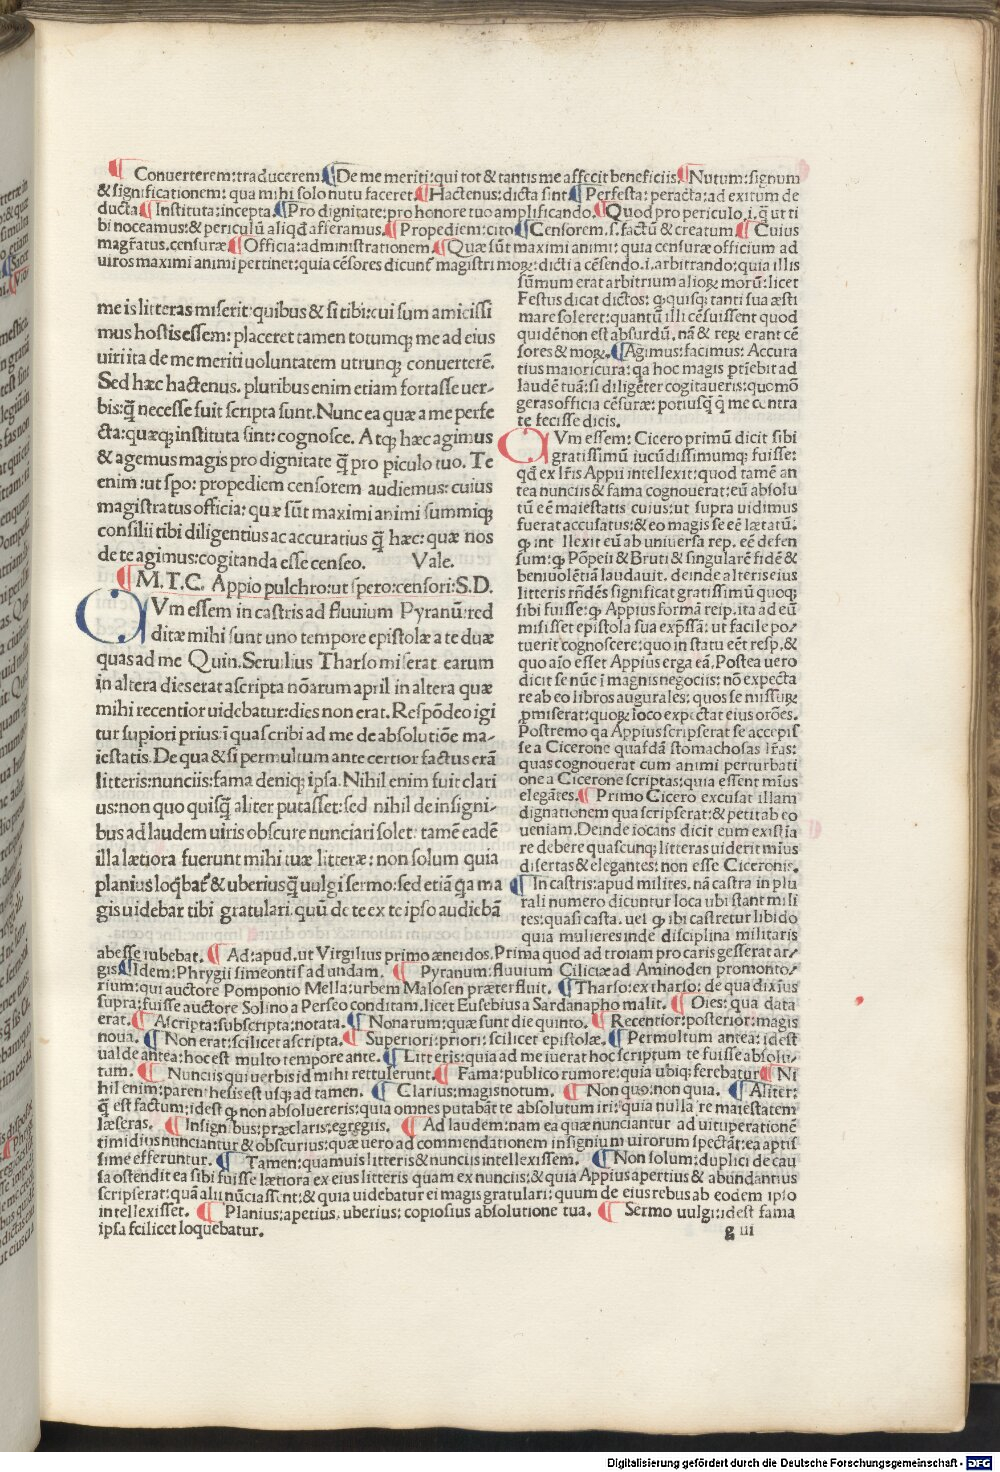 ¶ Conuerterem:traducerem ¶De me meriti:qui tot & tantis me affecit beneficiis.¶Nutum:signum
& significationem: qua mihi solo nutu faceret.¶Hactenus:dicta sint ¶Perfesta:peracta:ad exitum de
ducta ¶Instituta:incepta.¶Pro dignitate:pro honore tuo amplificando.¶Quod pro periculo.i.q̄ ut ti
bi noceamus:& periculū aliqđ afferamus.¶Propediem:cito ¶Censorem.s.factū & creatum ¶Cuius
magr̄atus.censuræ ¶Officia:administrationem ¶Quæ sūt maximi animi: quia censuræ officium ad
uiros maximi animi pertinet:quia cēsores dicunt̄ magistri moꝝ:dicti a cēsendo.i.arbitrando:quia illis
sūmum erat arbitrium alioꝝ moꝝ: licet
Festus dicat dictos: ꝙ quisq; tanti sua æsti
mare soleret:quantū illi cēsuissent quod
quidē non est absurdū. nā & reꝝ erant cē
sores & moꝝ.¶Agimus:facimus: Accura
tius maiori cura:qa hoc magis p̄riebit ad
laudē tuā:si diligēter cogitaueris:quomō
geras officia cēsuræ: potiusq̄ q̄ me contra
te fecisse dicis.
QVm essem: Cicero primū dicit sibi
gratissimū iucūdissimumq; fuisse:
qđ ex lr̄is Appii intellexit:quod tamē an
tea nunciis & fama cognouerat:eū absolu
tū eē maiestatis cuius: ut supra uidimus
fuerat accusatus:& eo magis se eē lætatū.
ꝙ int llexit eū ab uniuersa rep. eē defen
sum:ꝙ Pōpeii & Bruti & singularē fidē &
beniuolētiā laudauit. deinde alteris eius
litteris rn̄dēs significat gratissimū quoq;
sibi fuisse:ꝙ Appius formā reip.ita ad eū
misisset epistola sua exp̄ssā: ut facile po/
tuerit cognoscere:quo in statu eēt resp.&
quo aīo esset Appius erga eā. Postea uero
dicit se nūc ī magnis negociis: nō expecta
re ab eo libros augurales: quos se missuꝝ
ꝓmiserat:quoꝝ loco expectat eius orōes.
Postremo qa Appius scripserat se accepis
se a Cicerone quasdā stomachosas lr̄as:
quas cognouerat cum animi perturbati
one a Cicerone scriptas:quia essent mīus
elegātes.¶ Primo Cicero excusat illam
dignationem qua scripserat:& petit ab eo
ueniam.Deinde iocans dicit eum existia
re debere quascunq; litteras uiderit mīus
disertas & elegantes: non esse Ciceronis.
¶In castris:apud milites. nā castra in plu
rali numero dicuntur loca ubi stant mili
tes:quasi casta. uel ꝙ ibi castretur libido
quia mulieres inde disciplina militaris
me is litteras miserit:quibus & si tibi:cui sum amicissi
mus hostis essem: placeret tamen totumq; me ad eius
uiri ita de me meriti uoluntatem utrunq; conuerterē.
Sed hæc hactenus. pluribus enim etiam fortasse uer-
bis:q̄ necesse fuit scripta sunt.Nunc ea quæ a me perfe
cta:quæq; instituta sint: cognosce. Atq; hæc agimus
& agemus magis pro dignitate q̄ pro piculo tuo. Te
enim :ut spo: propediem censorem audiemus: cuius
magistratus officia: quæ sūt maximi animi summiq;
consilii tibi diligentius ac accuratius q̄ hæc: quæ nos
de te agimus:cogitanda esse censeo. Vale.
¶M.T.C. Appio pulchro:ut spero:censori:S.D.
QVm essem in castris ad fluuium Pyranū:red
ditæ mihi sunt uno tempore epistolæ a te duæ
quas ad me Quin.Seruilius Tharso miserat earum
in altera dies erat ascripta nōarum april in altera quæ
mihi recentior uidebatur:dies non erat.Respōdeo igi
tur supiori prius:ī qua scribi ad me de absolutiōe ma-
iestatis.De qua & si permultum ante certior factus erā
litteris:nunciis:fama deniq; ipsa. Nihil enim fuit clari
us:non quo quisq̄ aliter putasset:sed nihil de insigni-
bus ad laudem uiris obscure nunciari solet: tamē eadē
illa lætiora fuerunt mihi tuæ litteræ: non solum quia
planius loq̄bat̄ & uberius q̄ uulgi sermo:sed etiā q̄a ma
gis uidebar tibi gratulari.quū de te ex te ipso audiebā
abesse iubebat. ¶ Ad:apud.ut Virgilius primo æneidos.Prima quod ad troiam pro caris gesserat ar/
gis ¶Idem:Phrygii simeontis ad undam. ¶ Pyranum:fluuium Ciliciæ ad Aminoden promonto/
rium:qui auctore Pomponio Mella:urbem Malosen præterfluit. ¶Tharso:ex tharso: de qua diximus
supra:fuisse auctore Solino a Perseo conditam.licet Eusebius a Sardanapho malit. ¶ Oies: qua data
erat.¶ Ascripta:subscripta:notata.¶ Nonarum:quæ sunt die quinto. ¶ Recentior:posterior:magis
noua. ¶ Non erat:scilicet ascripta.¶ Superiori:priori:scilicet epistolæ. ¶Permultum antea: idest
ualde antea:hoc est multo tempore ante. ¶ Litteris:quia ad me iuerat hoc scriptum te fuisse absolu-
tum. ¶ Nunciis qui uerbis id mihi rettulerunt.¶ Fama:publico rumore:quia ubiq; ferebatur ¶ Ni
hil enim:parenthesis est usq; ad tamen. ¶ Clarius:magis notum. ¶ Non quo:non quia. ¶ Aliter:
q̄ est factum:idest ꝙ non absoluereris:quia omnes putabāt te absolutum iri: quia nulla re maiestatem
læseras. ¶Insignibus:præclaris:egregiis. ¶ Ad laudem:nam ea quæ nunciantur ad uituperationē
timidius nunciantur & obscurius:quæ uero ad commendationem insignium uirorum spectāt:ea aptis
sime efferuntur. ¶ Tamen:quamuis litteris & nunciis intellexissem. ¶Non solum:duplici de cau
sa ostendit ea sibi fuisse lætiora ex eius litteris quam ex nunciis:& quia Appius apertius & abundantius
scripserat:quā alii nūciassent:& quia uidebatur ei magis gratulari:quum de eius rebus ab eodem ipso
intellexisset. ¶ Planius:apetius. uberius: copiosius absolutione tua. ¶ Sermo uulgi:idest fama
ipsa scilicet loquebatur.
g iii
Digitalisierung gefördert durch die Deutsche Forschungsgemeinschaft - DFG